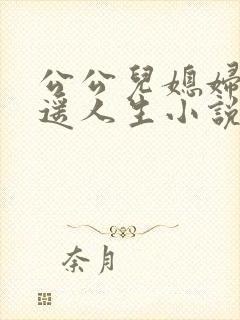 公公兒媳婦
遥人生小說
奈月